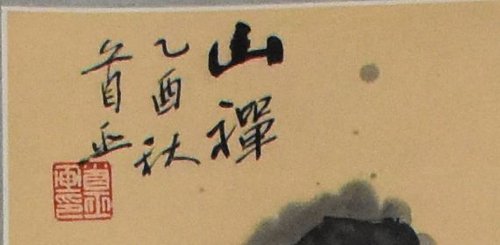 山禪
乙酉秋
首正